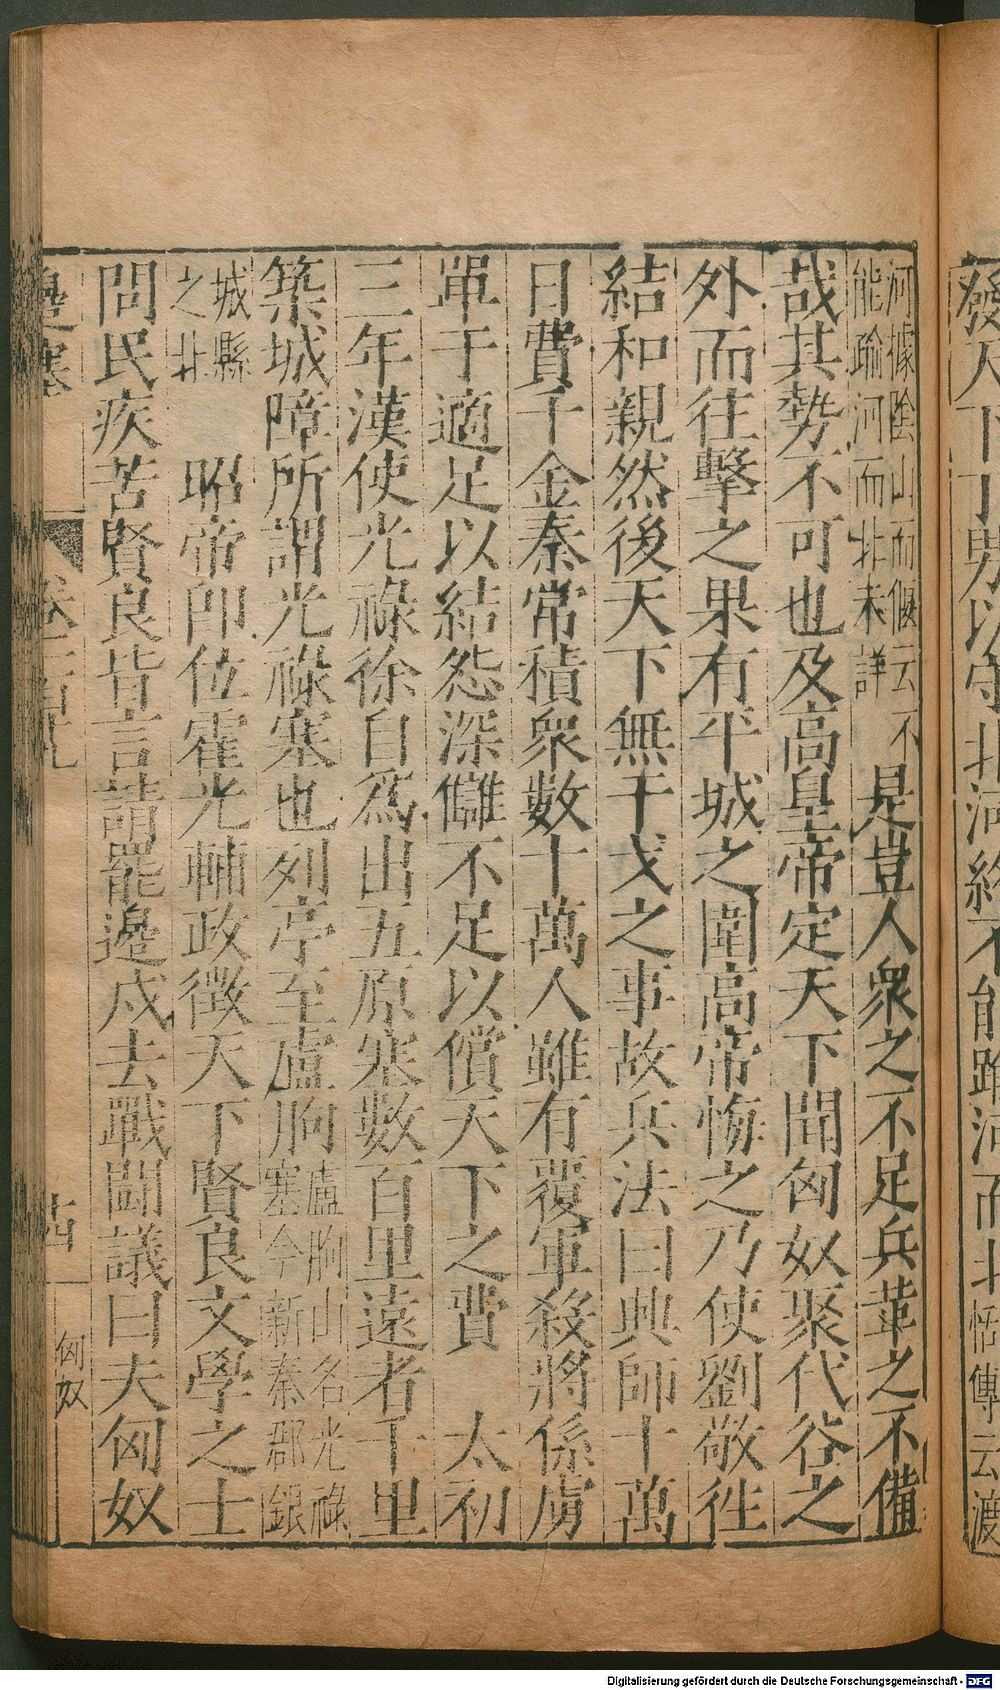 發天下丁男以守北河終不能踰河而北恬傳云渡
河據陰山而偃云不
能踰河而北未詳
是豈人衆之不足兵革之不備
哉其勢不可也及高皇帝定天下聞匈奴聚代谷之
外而往擊之果有平城之圍高帝悔之乃使劉敬往
結和親然後天下無干戈之事故兵法曰興師十萬
日費千金秦常積衆數十萬人雖有覆軍殺將係虜
單于適足以結怨深讎不足以償天下之費 太初
三年漢使光祿徐自爲出五原塞數百里遠者千里
築城障所謂光祿塞也列亭至盧朐
盧朐山名光祿
塞今新秦郡銀
城縣
之北
昭帝即位霍光輔政徵天下賢良文學之士
問民疾苦賢良皆言請罷邊戍去戰鬭議曰夫匈奴
邊塞
十四
匈奴
Digitalisierung gefördert durch die Deutsche Forschungsgemeinschaft - DFG